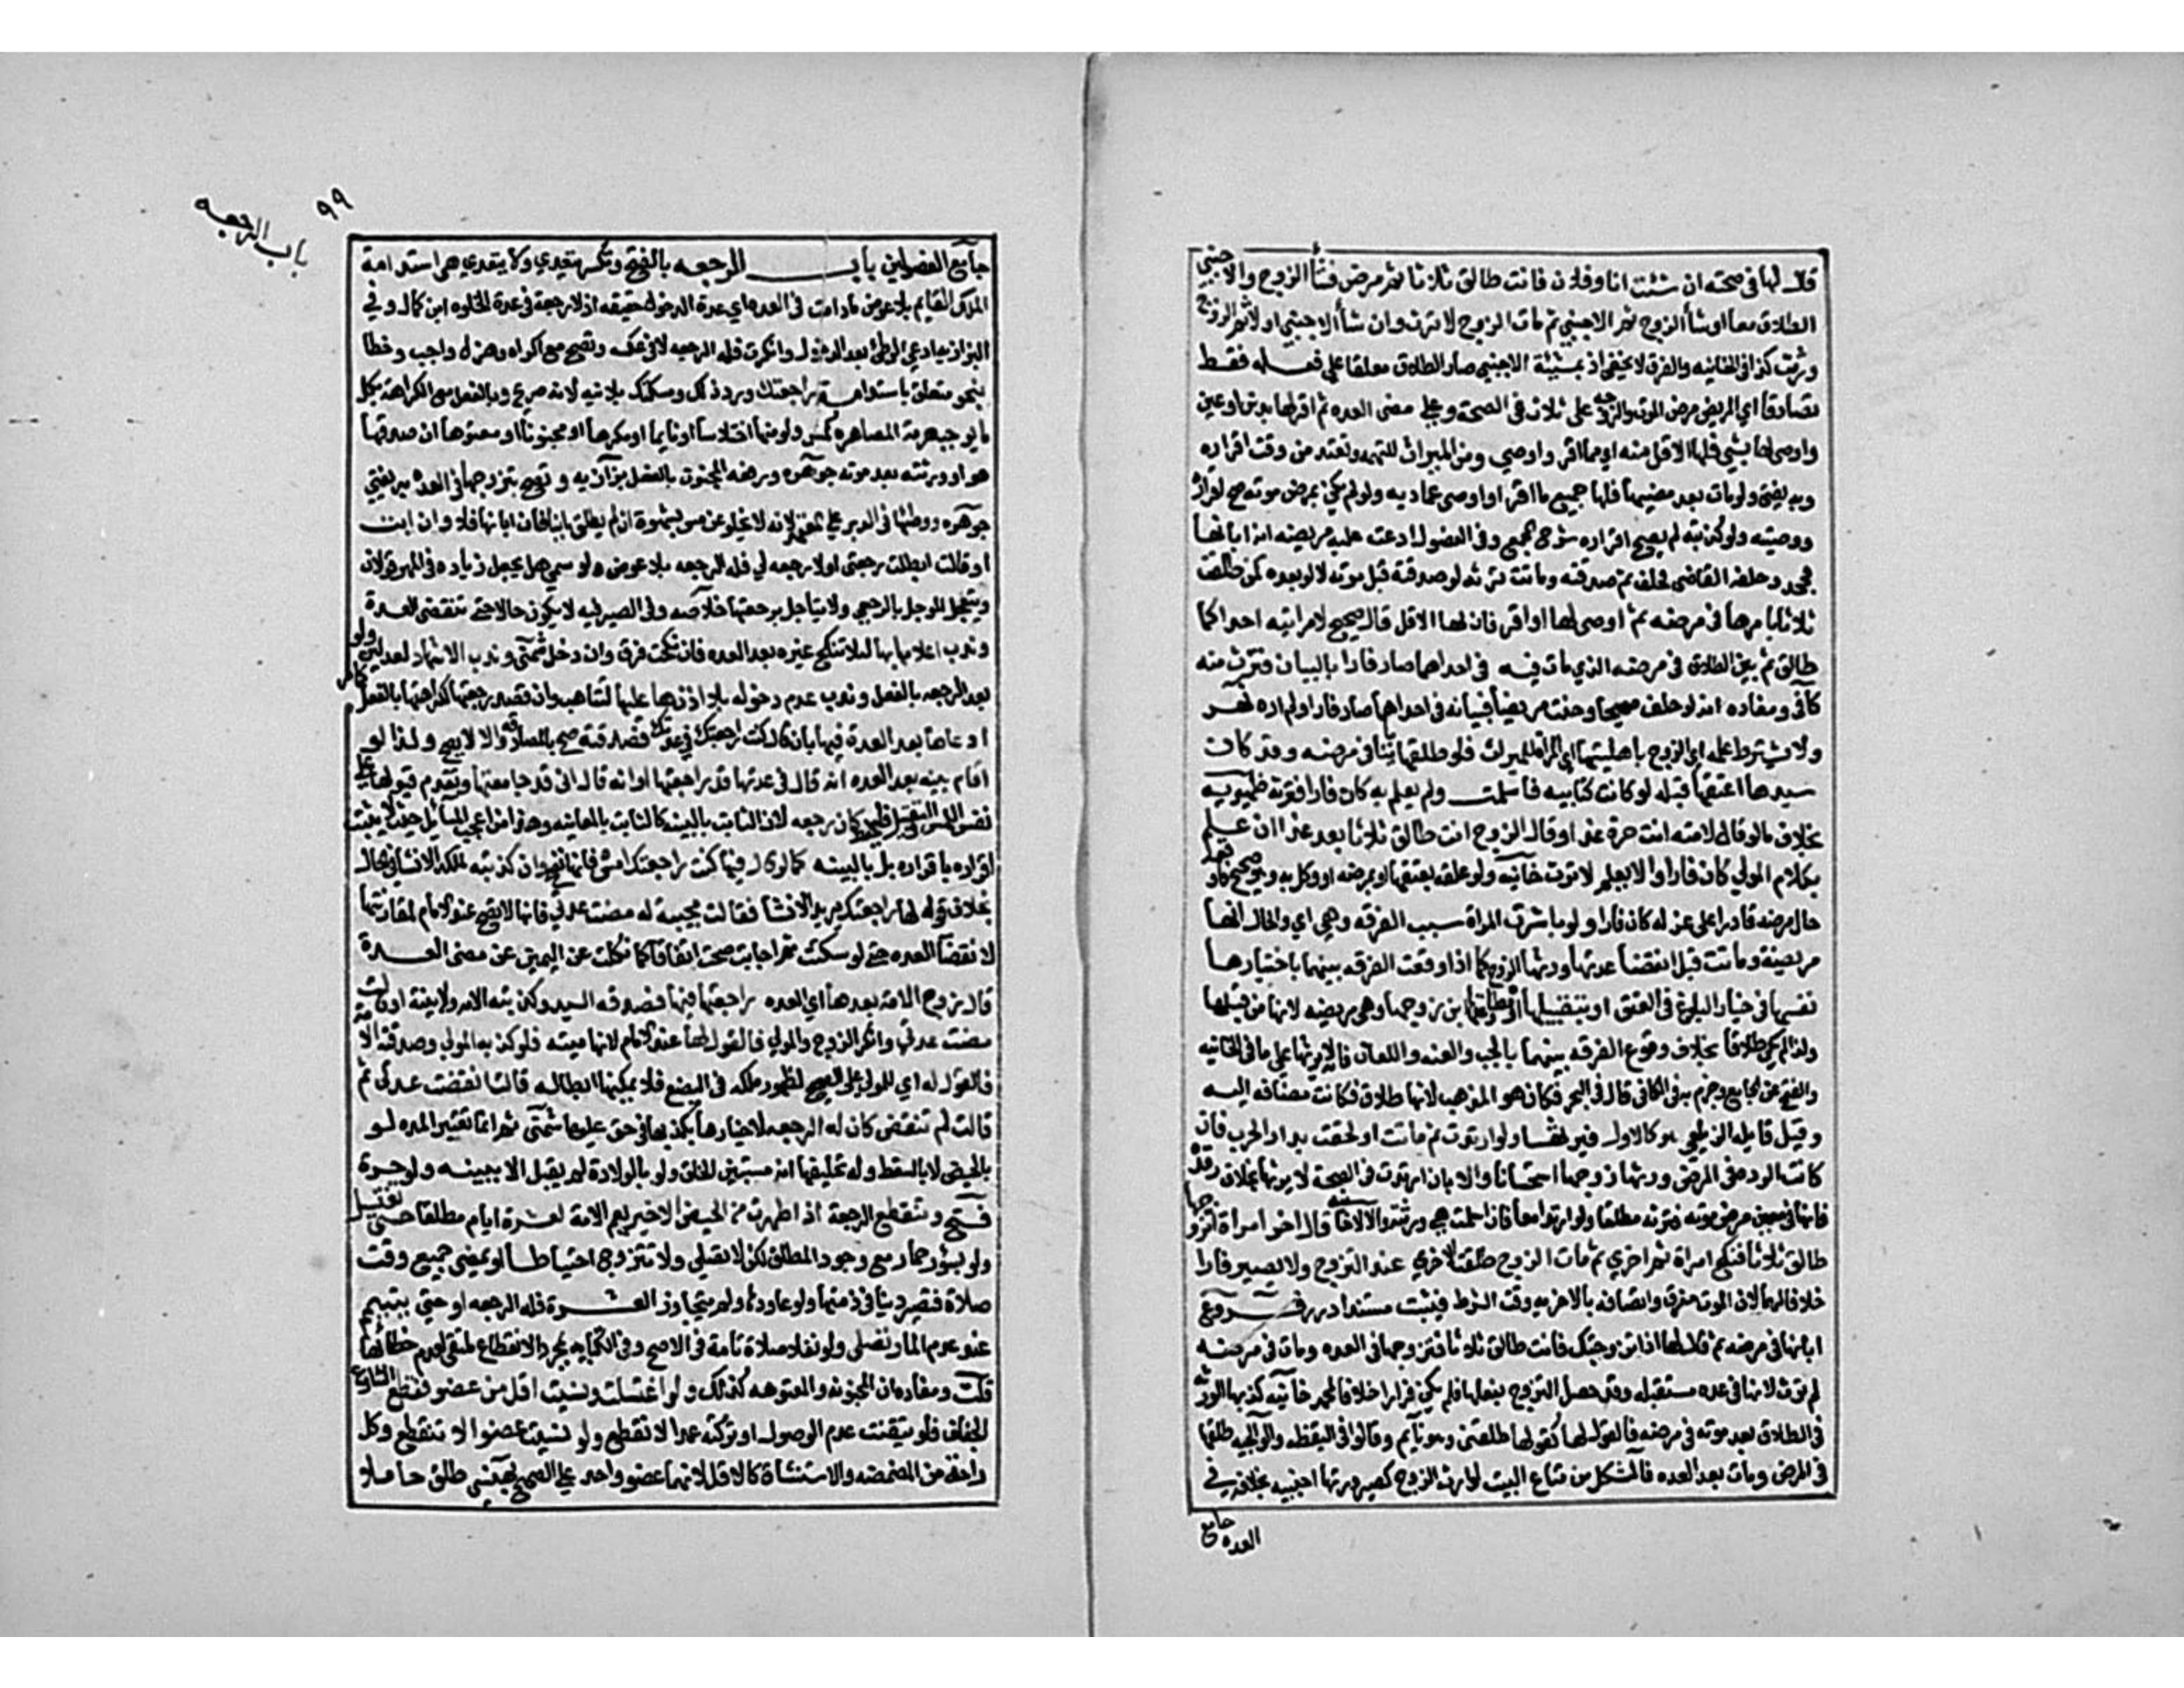 قال لها في صحته ان شئت انا وفلان فانت طالق ثلاثا ثم مرض فشأ الزوج والاجنبي
الطلاق معا او شأ الزوج ثم الاجنبي ثم مات الزوج لا ترث وان شأ الاجنبي اولا ثم الزوج
ورثت كذا في الخانيه والفرق لا يخفى اذ بمشيئة الاجنبي صار الطلاق معلقا على فعله فقط
تصادقا اي المريض مرض الموت والزوجه على ثلاث في الصحة وعلى مضى العده ثم اقر لها بدين او عين
او اوصى لها بشي فلها الاقل منه اي مما اقر او اوصي ومن الميراث للتهمه وتعتد من وقت اقراره
وبه يفتى ولو مات بعد مضيها فلها جميع ما اقر او اوصى عماديه ولو لم يكن بمرض موته صح اقراره
ووصيته ولو كذبته لم يصح اقراره شرح مجمع وفي الفصول ادعت عليه مريضه انه ابانها
فجحد وحلفه القاضي فحلف ثم صدقته ومات ترثه لو صدقته قبل موته لا لو بعده كمن طلقت
ثلاثا بامرها في مرضه ثم اوصى لها او اقر فان لها الاقل قال صحيح لامراتيه احداكما
طالق ثم بين الطلاق في مرضه الذي مات فيه في احداهما صار فارا بالبيان فترث منه
كافي ومفاده انه لو حلف صحيحا وحنث مريضا فبيانه في احداهما صار فارا ولم اره نهر
ولا يشترط علمه اي الزوج باهليتها اي المراة للميراث فلو طلقها بائنا في مرضه وقد كان
سيدها اعتقها قبله او كانت كتابيه فاسلمت ولم يعلم به كان فارا فترثه ظهيريه
بخلاف ما لو قال لامته انت حرة غدا وقال الزوج انت طالق ثلاثا بعد غد ان علم
بكلام المولي كان فارا والا يعلم لا ترث خانيه ولو علقه بعتقها او بمرضه او وكل به وهو صحيح فاوقعه
حال مرضه قادرا على عزله كان فارا ولو باشرت المراة سبب الفرقه وهي اي والحال انها
مريضة وماتت قبل انقضا عدتها ورثها الزوج كما اذا وقعت الفرقه بينهما باختيارها
نفسها في خيار البلوغ والعتق او بتقبيلها او مطاوعتها ابن زوجها وهي مريضه لانها من قبلها
ولذا لم يكن طلاقا بخلاف وقوع الفرقه بينهما بالجب والعنه واللعان فانه لا يرثها على ما في الخانيه
والفتح عن الجامع وجزم به في الكافي قال في البحر فكان هو المذهب لانها طلاق فكانت مضافه اليه
وقيل قايله الزيلعي هو كالاول فيرثها ولو ارتدت ثم ماتت او لحقت بدار الحرب فان
كانت الرده في المرض ورثها زوجها استحسانا والا بان ارتدت في الصحة لا يرثها بخلاف ردته
فانها في معنى مرض موته فترثه مطلقا ولو ارتدا معا فان اسلمت هي ورثته والا لا قال اخر امراة اتزوجها
طالق ثلاثا فنكح امراة ثم اخري ثم مات الزوج طلقت الاخري عند التزوج ولا يصير فارا
خلافا لهما لان الموت معرف واتصافه بالاخريه وقت الشرط فيثبت مستندا درر فروع
ابانها في مرضه ثم قال لها اذا تزوجتك فانت طالق ثلاثا فتزوجها في العده ومات في مرضه
لم ترث لانها في عده مستقبله وقد حصل التزوج بفعلها فلم يكن فرارا خلافا لمحمد خانيه كذبها الورثه
في الطلاق بعد موته في مرضه فالقول لها كقولها طلقني وهو نايم وقالوا في اليقظه والوالجيه طلقها
في المرض ومات بعد العده فالمشكل من متاع البيت لوارث الزوج كصيرورتها اجنبيه بخلافه في
العده جامع
٩٩
باب الرجعه
جامع الفصولين باب الرجعه بالفتح وتكسر يتعدي ولا يتعدي هي استدامة
الملك القايم بلا عوض ما دامت في العده اي عدة الدخول حقيقه اذ لا رجعة في عدة الخلوه ابن كمال وفي
البزازيه ادعى الوطئ بعد الدخول وانكرت فله الرجعه لا في عكسه وتصح مع اكراه وهزل ولعب وخطا
بنحو متعلق باستدامه راجعتك ورددتك ومسكتك بلا نيه لانه صريح وبالفعل مع الكراهة بكل
ما يوجب حرمة المصاهره كمس ولو منها اختلاسا او نايما او مكرها او مجنونا او معتوها ان صدقها
هو او ورثته بعد موته جوهره ورجعة المجنون بالفعل بزازيه وتصح بتزوجها في العده به يفتي
جوهره ووطئها في الدبر على المعتمد لانه لا يخلو عن مس بشهوة ان لم يطلق باينا فان ابانها فلا وان ابت
او قالت ابطلت رجعتي او لا رجعه لي فله الرجعه بلا عوض ولو سمي هل يجعل زياده في المهر قولان
ويتعجل الموجل بالرجعي ولا يتاجل برجعتها خلاصه وفي الصيرفيه لا يكون حالا حتى تنقضي العدة
وندب اعلامها بها لئلا تنكح غيره بعد العده فان نكحت فرق وان دخل شمني وندب الاشهاد بعدلين ولو
بعد الرجعه بالفعل وندب عدم دخوله بلا اذنها عليها لتتاهب وان قصد رجعتها لكراهتها بالفعل كما مر
ادعاها بعد العدة فيها بان قال كنت راجعتك في عدتك فصدقته صح بالمصادقه والا لا يصح ولذا لو
اقام بينه بعد العده انه قال في عدتها قد راجعتها او انه قال اني قد جامعتها وتقدم قبولها على
نفس اللمس والتقبيل فليحفظ كان رجعه لان الثابت بالبينه كالثابت بالمعاينه وهذا من اعجب المسائل حيث لا يثبت
اقراره باقراره بل بالبينه كما لو قال فيها كنت راجعتك امس فانها تصح وان كذبته لملكه الانشا في الحال
بخلاف قوله لها راجعتك يريد الانشا فقالت مجيبة له مضت عدتي فانها لا تصح عند الامام لمقارنتها
لانقضا العده حتى لو سكتت ثم اجابت صحت اتفاقا كما لو نكلت عن اليمين عن مضى العدة
قال زوج الامة بعدها اي العده راجعتها فيها فصدقه السيد وكذبته الامة ولا بينة او قالت
مضت عدتي وانكر الزوج والمولي فالقول لها عند الامام لانها امينه فلو كذبه المولي وصدقته الامة
فالقول له اي للمولى على الصحيح لظهور ملكه في البضع فلا يمكنها ابطاله قالت انقضت عدتي ثم
قالت لم تنقض كان له الرجعه لاخبارها بكذبها في حق عليها شمني ثم انما تعتبر المده لو
بالحيض لا بالسقط وله تحليفها انه مستبين الخلق ولو بالولادة لم يقبل الا ببينه ولو حرة
فتح وتنقطع الرجعة اذا طهرت من الحيض الاخير يعم الامة لعشرة ايام مطلقا حتى تغتسل
ولو بسؤر حمار مع وجود المطلق لكن لا تصلي ولا تتزوج احتياطا او يمضي جميع وقت
صلاة فتصير دينا في ذمتها ولو عاودها ولم يتجاوز العشرة فله الرجعه او حتى تتيمم
عند عدم الما وتصلى ولو نفلا صلاة تامة في الاصح وفي الكتابيه بمجرد الانقطاع ملتقى لعدم خطابها
قلت ومفاده ان المجنونه والمعتوهه كذلك ولو اغتسلت ونسيت اقل من عضو تنقطع لتسارع
الجفاف فلو تيقنت عدم الوصول او تركته عمدا لا تنقطع ولو نسيت عضوا لا تنقطع وكل
واحدة من المضمضه والاستنشاق كالاقل لانهما عضو واحد على الصحيح بهنسي طلق حاملا